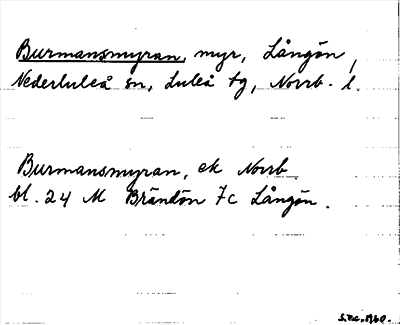 Burmansmyran, myr, Långön,
Nederluleå sn, Luleå tg, Norrb. l.
Burmansmyran, ek Norrb.
bl. 24 M Brändön 7c Långön.